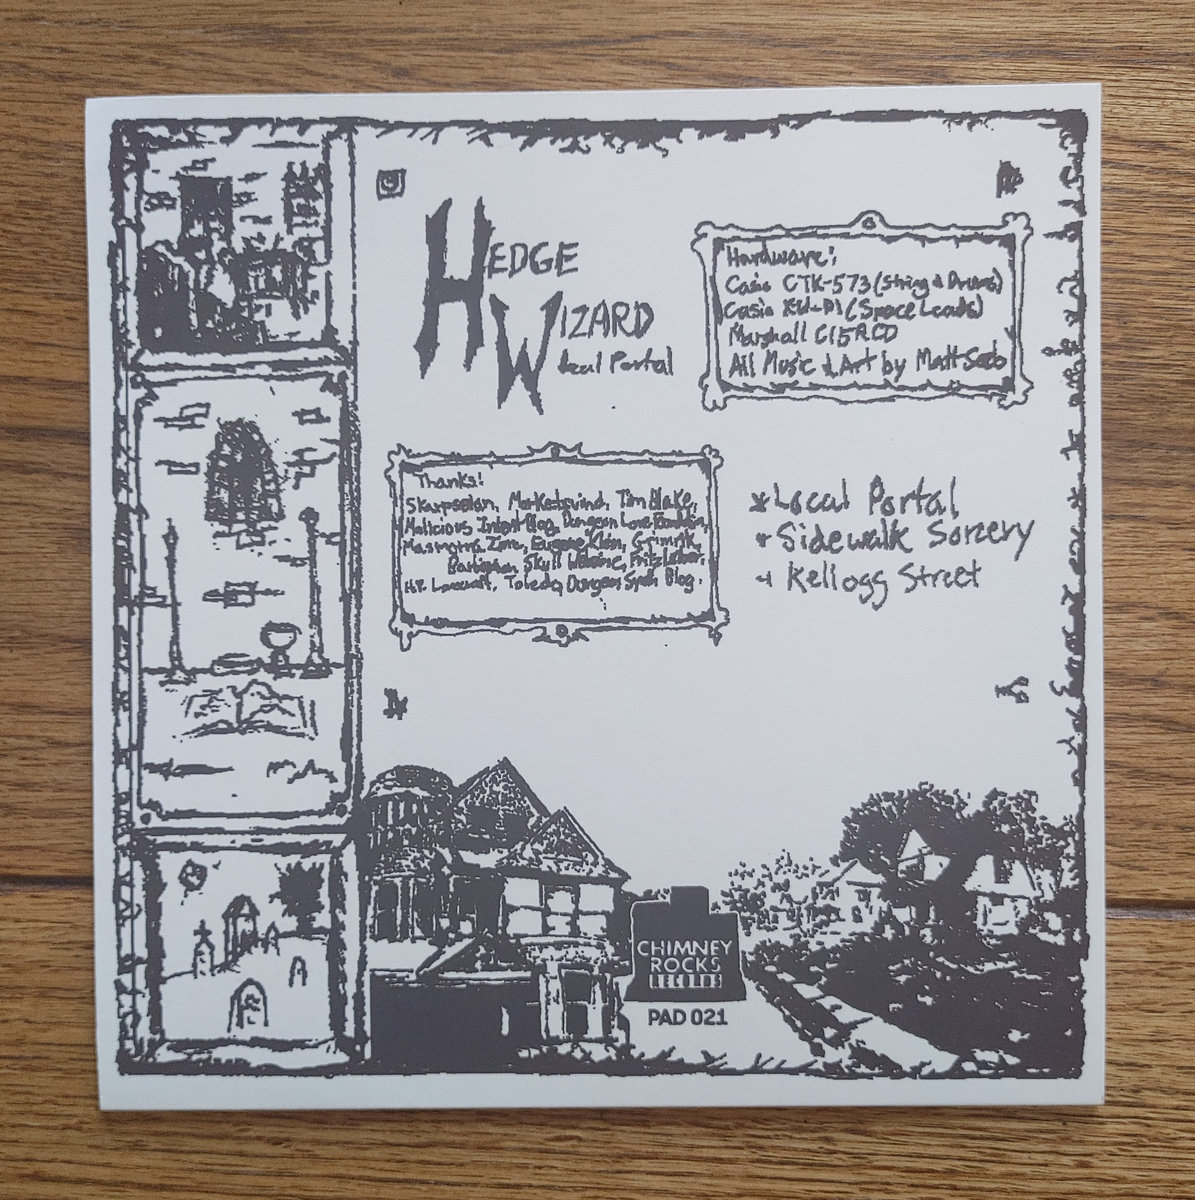 HEDGE
WIZARD
Local Portal
Hardware:
Casio CTK-573 (String & Drums)
Casio (Space Leads)
Marshall C15RCD
All Music & Art by Matt
Thanks:
Skarpseian, Tim Blake,
Malicious Intent Blog, Dungeon Lore
Zine, Eugene Klein, Grimrik,
Skull Fritz Leiber,
H.P. Lovecraft, Toledo, Dungeon Synth Blog.
* Local Portal
Sidewalk Sorcery
Kellogg Street
CHIMNEY
ROCKS
RECORDS
PAD 021